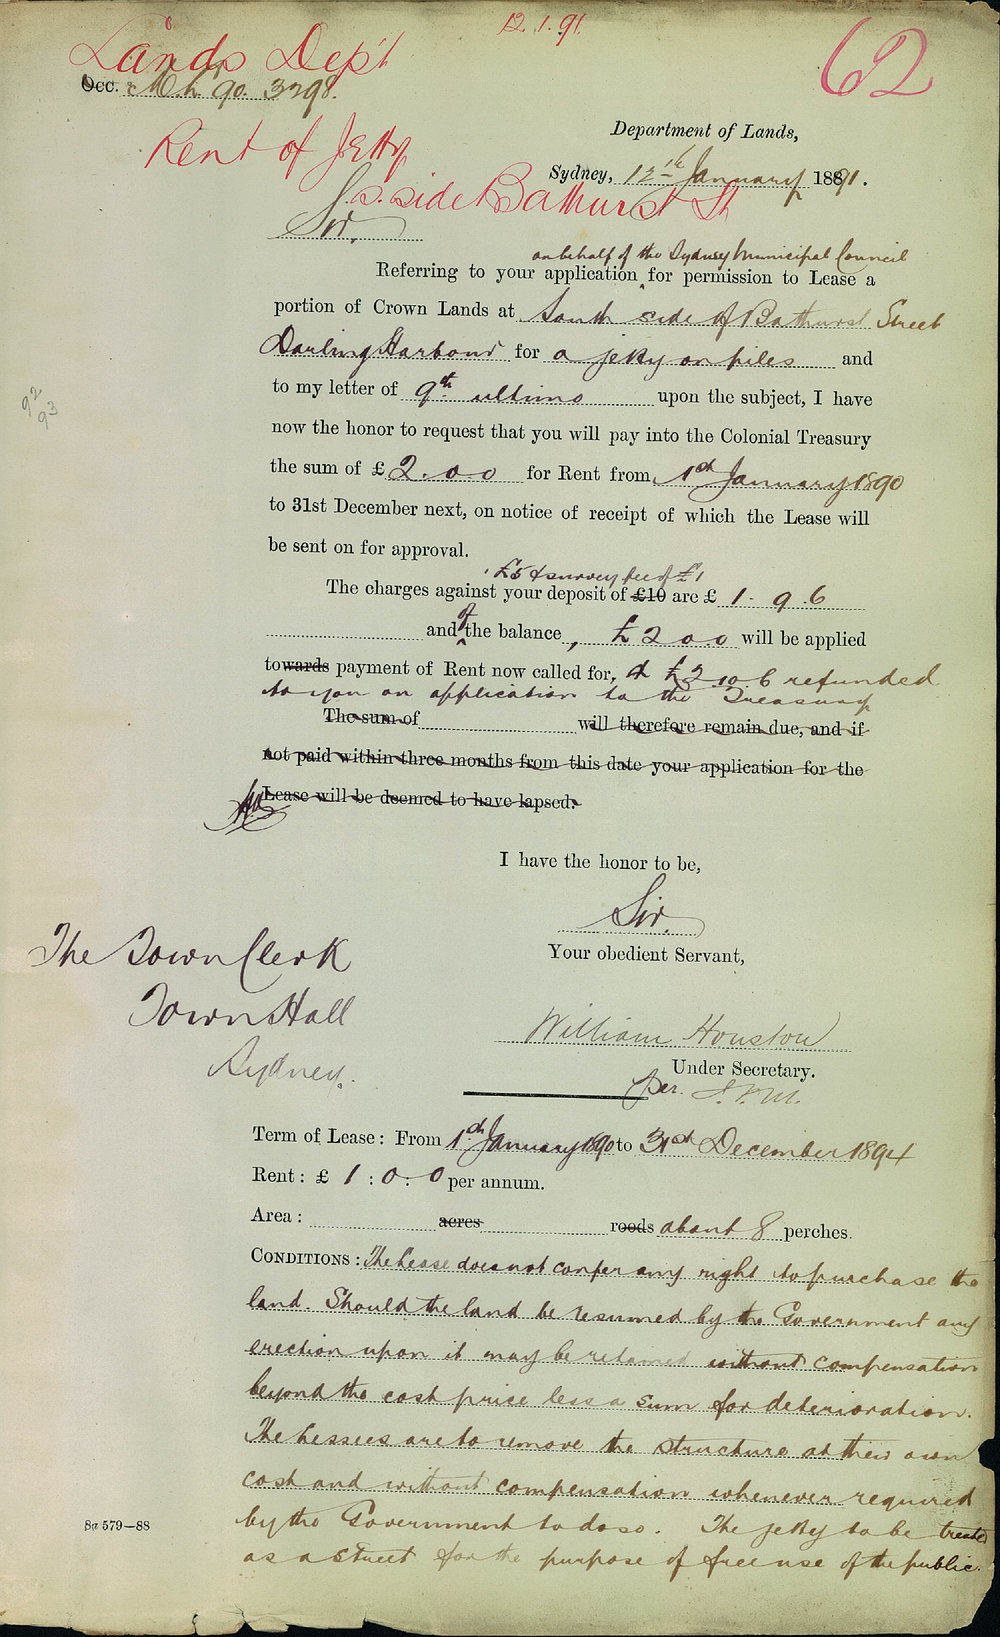 12.1.91.
Lands Dep't
62
Occ. Mh 90. 3298.
Department of Lands,
Rent of Jetty
Sydney, 12th January 1891.
S. side Bathurst St
Sir,
on behalf of the Sydney Municipal Council
Referring to your application for permission to Lease a
portion of Crown Lands at South side of Bathurst Street
Darling Harbour for a jetty on piles and
to my letter of 9th ultimo upon the subject, I have
92
93
now the honor to request that you will pay into the Colonial Treasury
the sum of £ 2.0.0 for Rent from 1st January 1890
to 31st December next, on notice of receipt of which the Lease will
be sent on for approval.
£5 & survey fee of £1
The charges against your deposit of £10 are £ 1. 9. 6
and of the balance, £2.0.0 will be applied
towards payment of Rent now called for, & £2.10.6 refunded
to you on application to the Treasury
The sum of will therefore remain due, and if
not paid within three months from this date your application for the
Lease will be deemed to have lapsed.
I have the honor to be,
Sir,
Your obedient Servant,
The Town Clerk
Town Hall
Sydney.
William Houston
Under Secretary.
per.
Term of Lease: From 1st January 1890 to 31st December 1894
Rent: £ 1 : 0 : 0 per annum.
Area: acres roods about 8 perches.
CONDITIONS: The Lease does not confer any right to purchase the
land. Should the land be resumed by the Government any
erection upon it may be retained without compensation
beyond the cost price less a sum for deterioration.
The Lessees are to remove the structure at their own
cost and without compensation whenever required
by the Government to do so. The jetty to be treated
as a street for the purpose of free use of the public.
8a 579—88